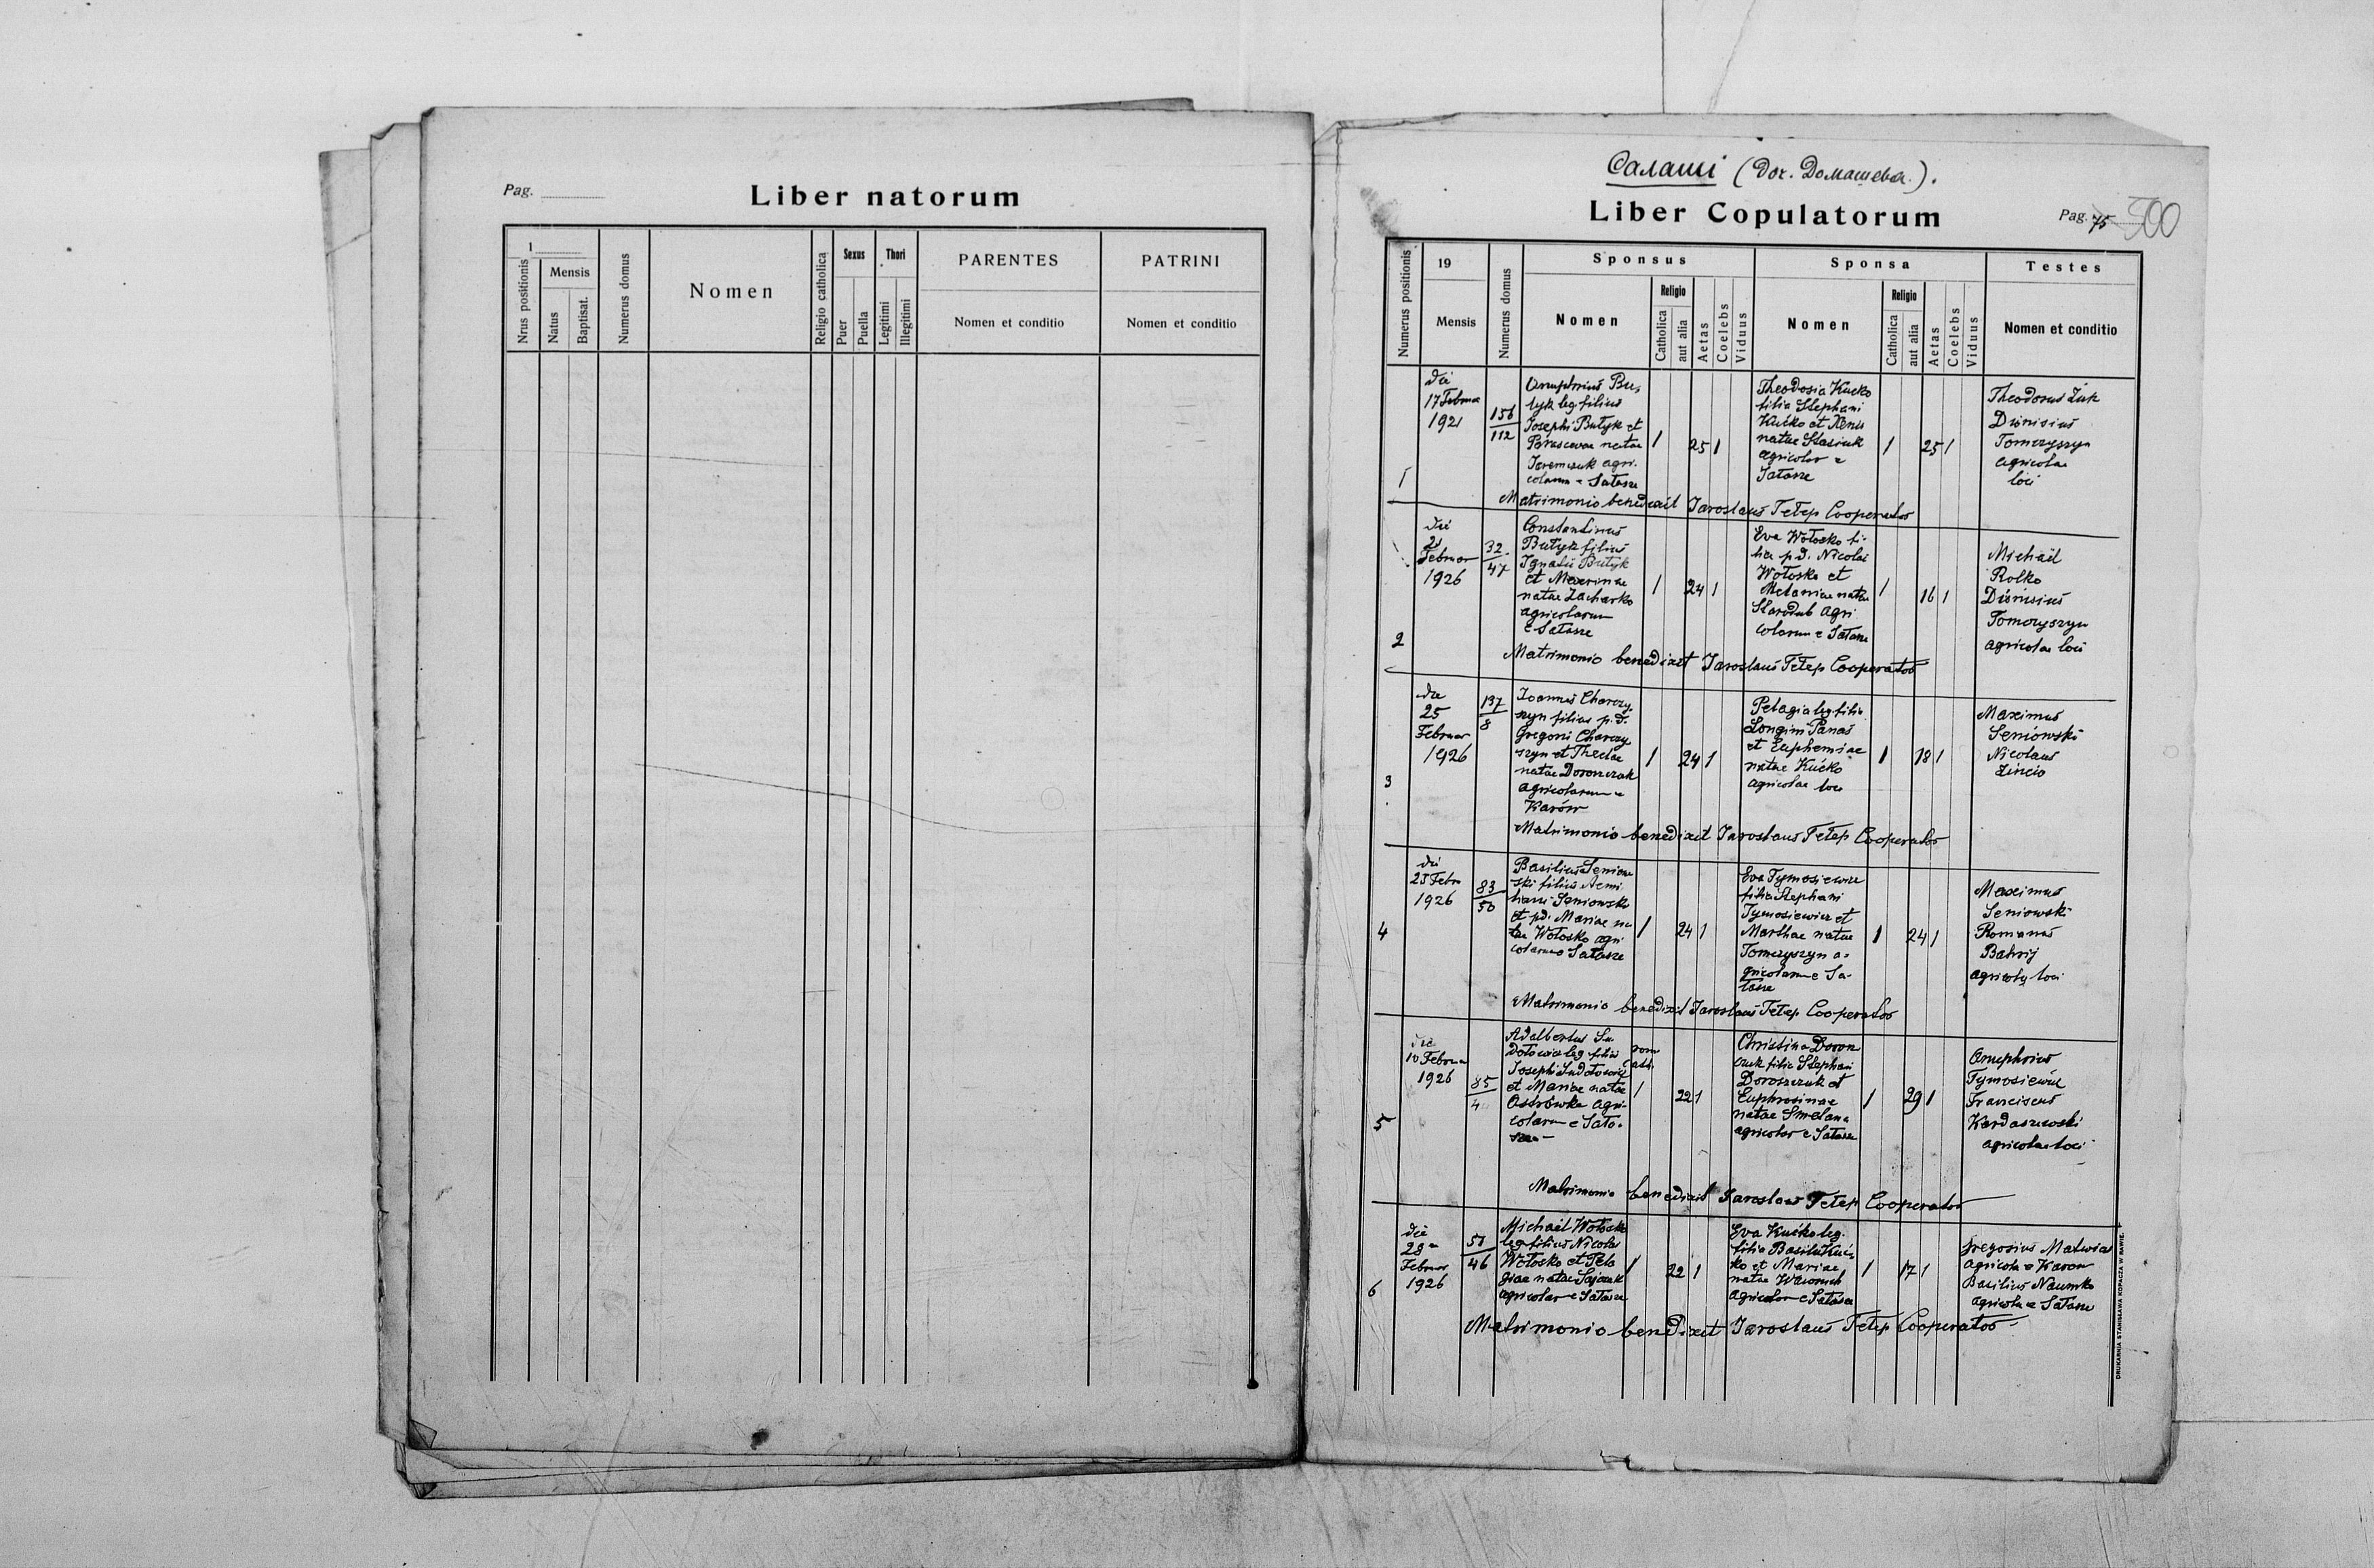 Pag.
Liber natorum
1
Nrus positionis
Mensis
Natus
Baptisat.
Numerus domus
Nomen
Religio catholica
Sexus
Puer
Puella
Thori
Legitimi
Illegitimi
PARENTES
Nomen et conditio
PATRINI
Nomen et conditio
Салаші (Доч. Домашева.).
Liber Copulatorum
Pag. 75 500
Numerus positionis
19
Mensis
Numerus domus
Sponsus
Nomen
Religio
Catholica
aut alia
Aetas
Coelebs
Viduus
Sponsa
Nomen
Religio
Catholica
aut alia
Aetas
Coelebs
Viduus
Testes
Nomen et conditio
1
die
17 Februa
1921
156
112
Onuphrius Bu,
tyk leg. filius
Josephi Butyk et
natae
agri.
colarum e Sałasze
1
25 1
Theodosia Kućko
filia Stephani
Kućko et
natae Stasiuk
agricolar e
Sałasze
1
25 1
Theodorus Żuk
Dionisius
Tomczyszyn
agricolae
loci
Matrimonio benedixit Jaroslaus Tetep Cooperator
2
die
21
Februar
1926
32
47
Constantinus
Butyk filius
Ignatii Butyk
et
natae Zacharko
agricolarum
e Sałasze
1
24 1
Eva Wołosko fi-
lia p.d. Nicolai
Wołosko et
Melaniae natae
Starodub agri
colarum e Sałasze
1
16 1
Michaël
Rolko
Dionisius
Tomczyszyn
agricolae loci
Matrimonio benedixit Jaroslaus Tetep Cooperator
3
die
25
Februar
1926
137
8
Joannes Charczy
szyn filius p.d.
Gregorii Charczy
szyn et Theclae
natae Doroszczuk
agricolarum e
Karów
1
24 1
Pelagia leg. filia
Longini Panas
et Euphemiae
natae Kućko
agricolae loci
1
18 1
Maximus
Seniówski
Nicolaus
Zincio
Matrimonio benedixit Jaroslaus Tetep Cooperator
4
die
25 Febru
1926
83
50
Basilius Seniow
ski filius Aemi
liani Seniowski
et p.d. Mariae na
tae Wołosko agri
colarum e Sałasze
1
24 1
Eva Tymosiewicz
filia Stephani
Tymosiewicz et
Marthae natae
Tomczyszyn a-
gricolarum e Sa-
łasze
1
24 1
Maximus
Seniowski
Romanus
Batwij
agricolae loci
Matrimonio benedixit Jaroslaus Tetep Cooperator
5
die
10 Februa
1926
85
4
Adalbertus Su
dołowicz leg. filius
Josephi Sudołowicz
et Mariae natae
Ostrówka agri-
colarum e Sała.
sze-
rom
cath.
1
22 1
Christina Dorosz
czuk filia Stephani
Doroszczuk et
Euphrosinae
natae Smolana
agricolar e Sałasze
1
29 1
Onuphrius
Tymosiewicz
Franciscus
Kardaszewski
agricolae loci
Matrimonio benedixit Jaroslaus Tetep Cooperator
6
die
28
Februar
1926
58
46
Michaël Wołosko
leg filius Nicolai
Wołosko et Pela
giae natae Sajczuk
agricolar e Sałasze
1
22 1
Eva Kućko leg.
filia Basilii Kuć,
ko et Mariae
natae
agricolar e Sałasze
1
17 1
Gregorius Matwias
agricola e Karow
Basilius Naumko
agricola e Sałasze
Matrimonio benedixit Jaroslaus Tetep Cooperator
DRUKARNIA STANISŁAWA KOPACZA W RAWIE.